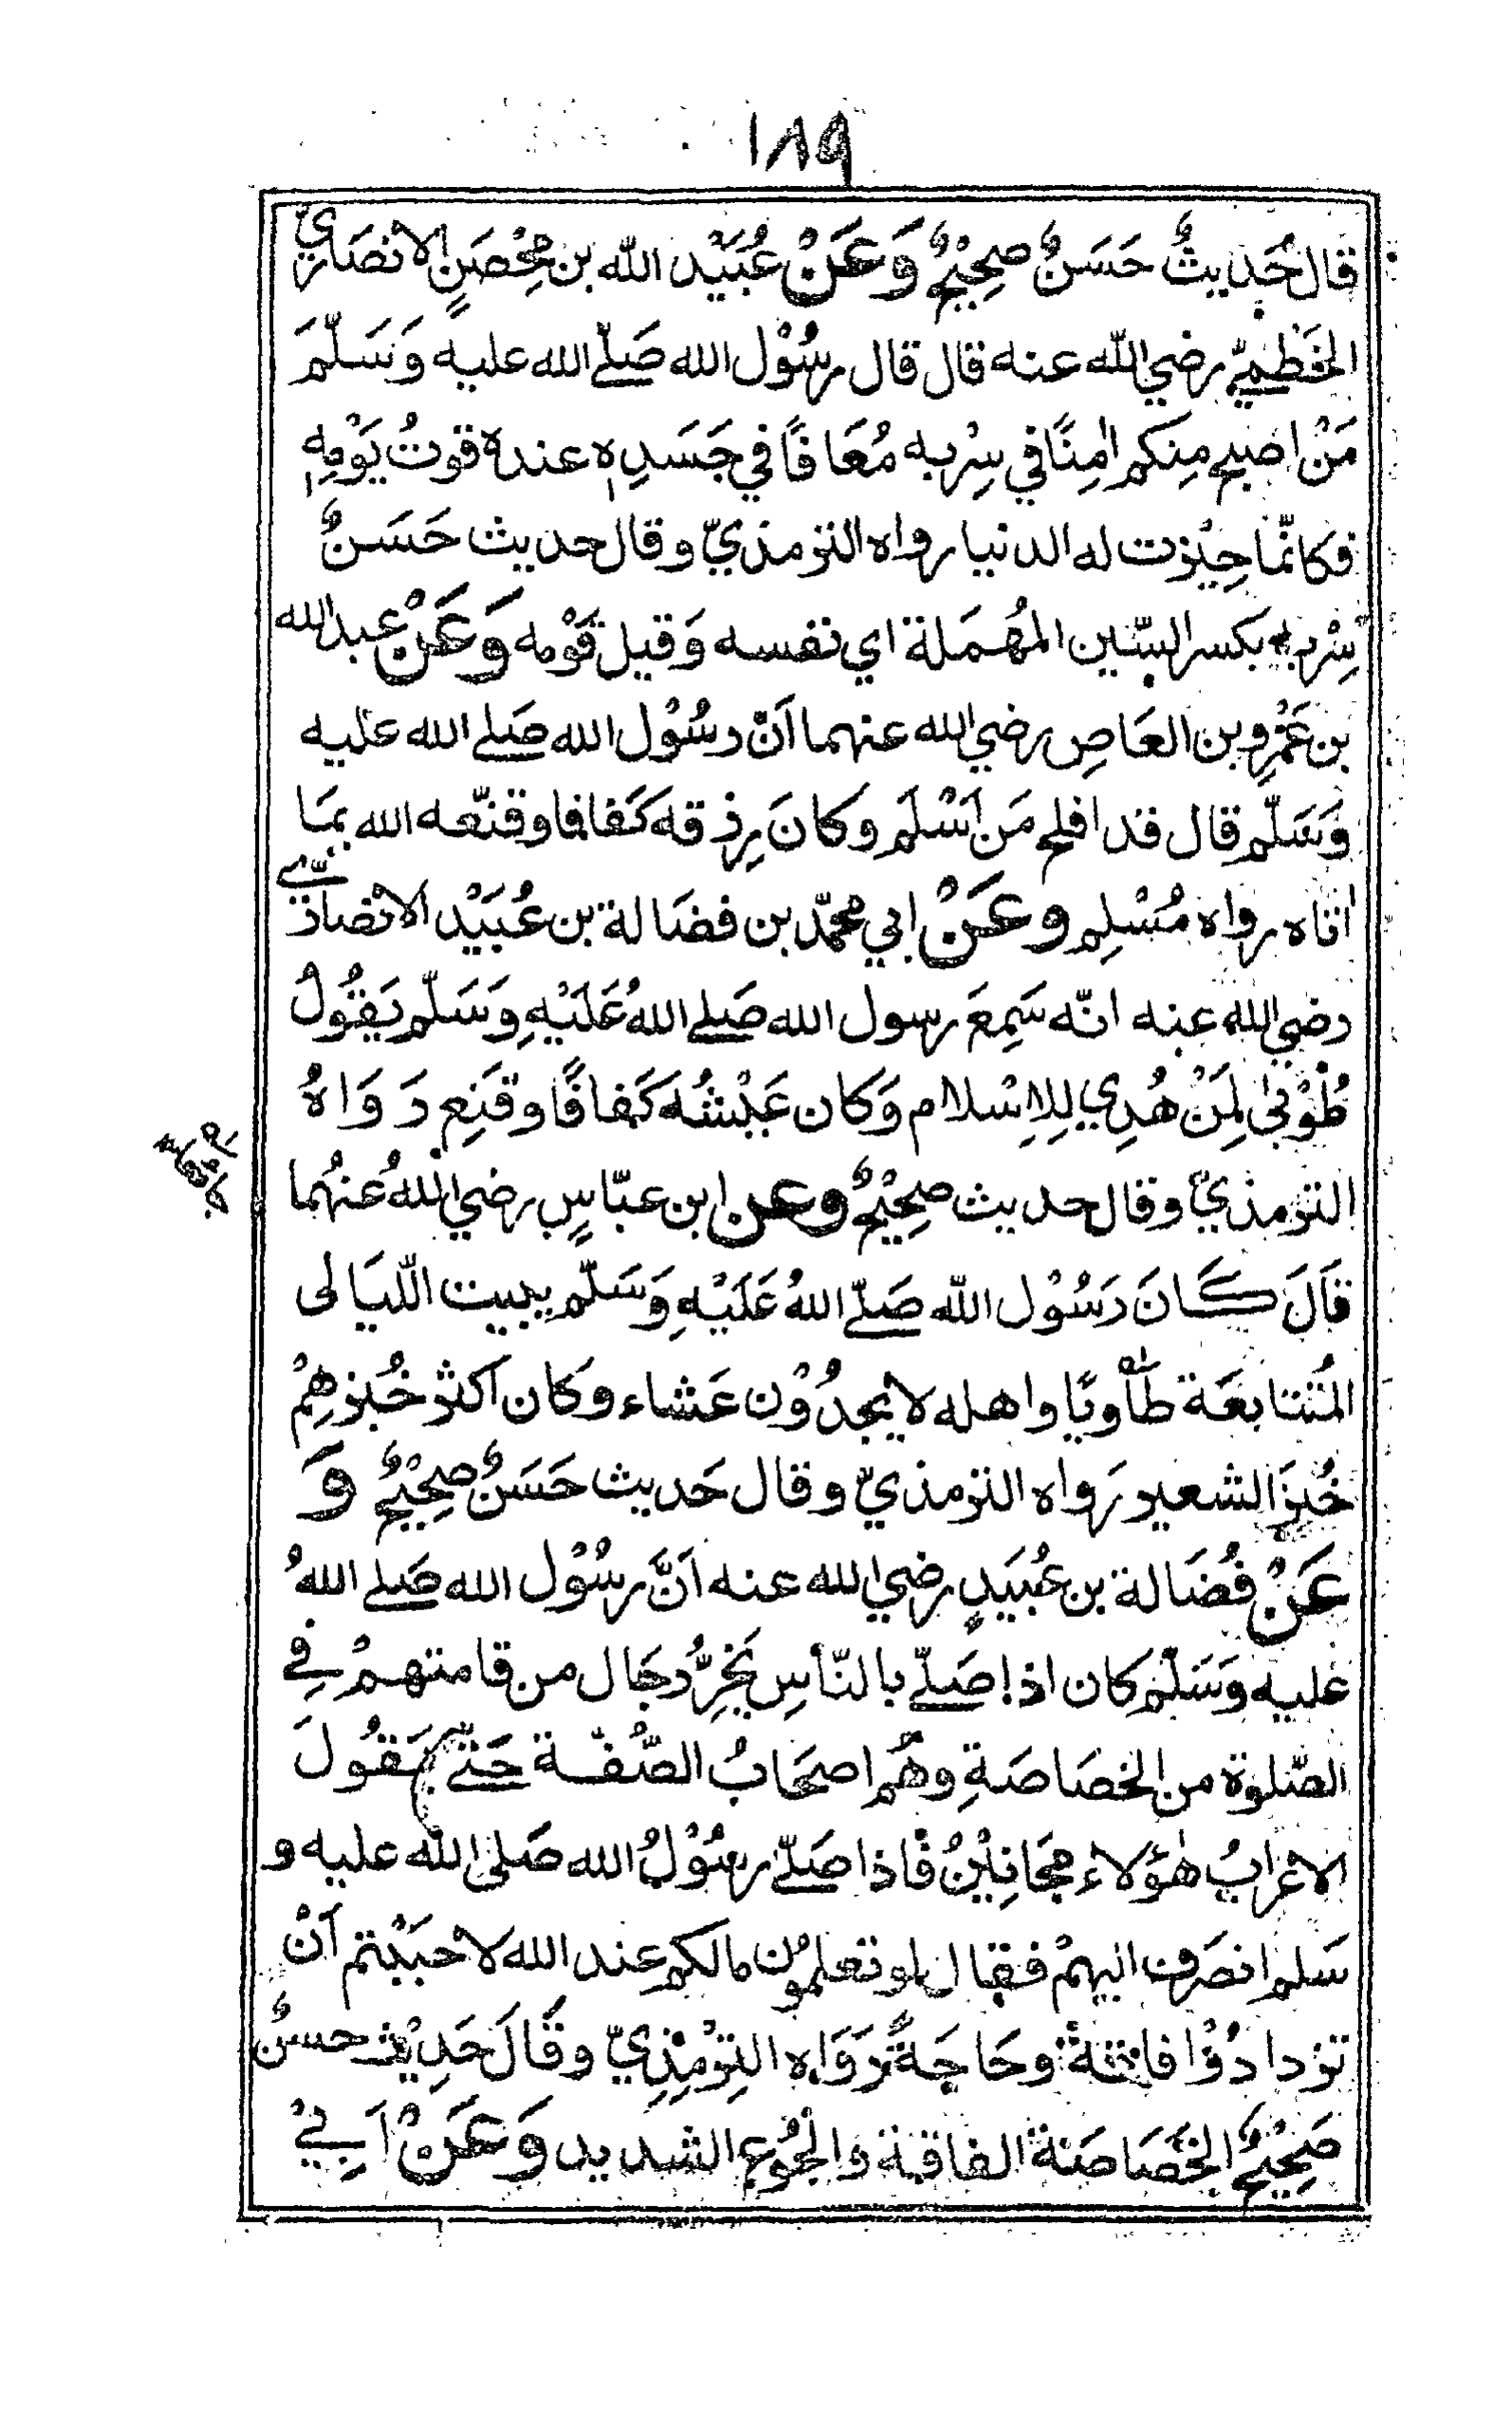 ١٨٩
قال حَديثٌ حَسَنٌ صحِيْحٌ وَعَنْ عُبَيْد الله بن مِحْصَنٍ الانصَارِيّ
الخَطْمِيّ رضي الله عنه قال قال رسُوْل الله صَلّے الله عليه وَسَلّمَ
مَنْ اصبح مِنكم اٰمِنًا في سِرْبه مُعَافًا في جَسَدِهٖ عنده قوتُ يَوْمِهٖ
فكانّما حِيْزت له الدنيا رواه الترمذيّ وقال حديث حَسَنٌ
سِرْبه بكسر السّين المهُمَلة اي نفسه وَقيل قَوْمه وَعَنْ عبد الله
بن عَمْرٍو بن العَاصِ رضي الله عنهما اَنّ رسُوْل الله صَلے الله عليه
وَسَلّم قال قد افلح مَن اَسْلَم وكانَ رِزقه كَفافا وقنّعه الله بمَا
اٰتاه رواه مُسْلِم وعَنْ ابي محمّد بن فضَالة بن عُبَيْد الانصاريّ
رضي الله عنه انّه سَمِعَ رسول الله صَلے اللهُ عَلَيْهِ وَسَلّم يَقُولُ
طُوْبىٰ لِمَنْ هُدِي لِلاِسْلام وَكان عَيْشُه كَفافًا وقَنِع رَوَاهُ
الترمذيّ وقال حديث صحِيْحٌ وعن ابن عبّاسٍ رضي اللهُ عنهُما
قَالَ كَانَ رَسُوْل الله صَلّے اللهُ عَلَيْهِ وَسَلّم يبيت اللّيَالى
المُتتابعَة طَاوِيًا واهله لا يجدُوْن عَشاء وكان اكثر خُبزهِمْ
خُبزَ الشعير رَواه الترمذيّ وقال حَديث حَسَنٌ صحِيْحٌ وَ
عَنْ فُضَالة بن عُبَيَدٍ رضي الله عنه اَنَّ رسُوْل الله صَلے اللهُ
عليه وَسَلّم كان اذا صَلّے بالنّاسِ يَخِرُّ رجَال من قامتهمْ فِے
الصّلوة من الخصَاصَةِ وهُم اصحَابُ الصُّفّة حَتّے يَقُولَ
الاعْرابُ هٰؤلاء مجَانِيْنُ فَاذا صَلّے رسُوْلُ الله صَلى الله عليه و
سَلم انصَرف اليهمْ فقال لو تعلمُون مالكم عند الله لاحبَبْتم اَنْ
تزدادُوْا فاقةً وحَاجَةً رَوَاه التِرْمِذِيّ وقَالَ حَدِيْث حسنٌ
صَحِيْحٌ الخَصَاصَة الفاقة والجُوع الشديد وَعَنْ اَبِيْ